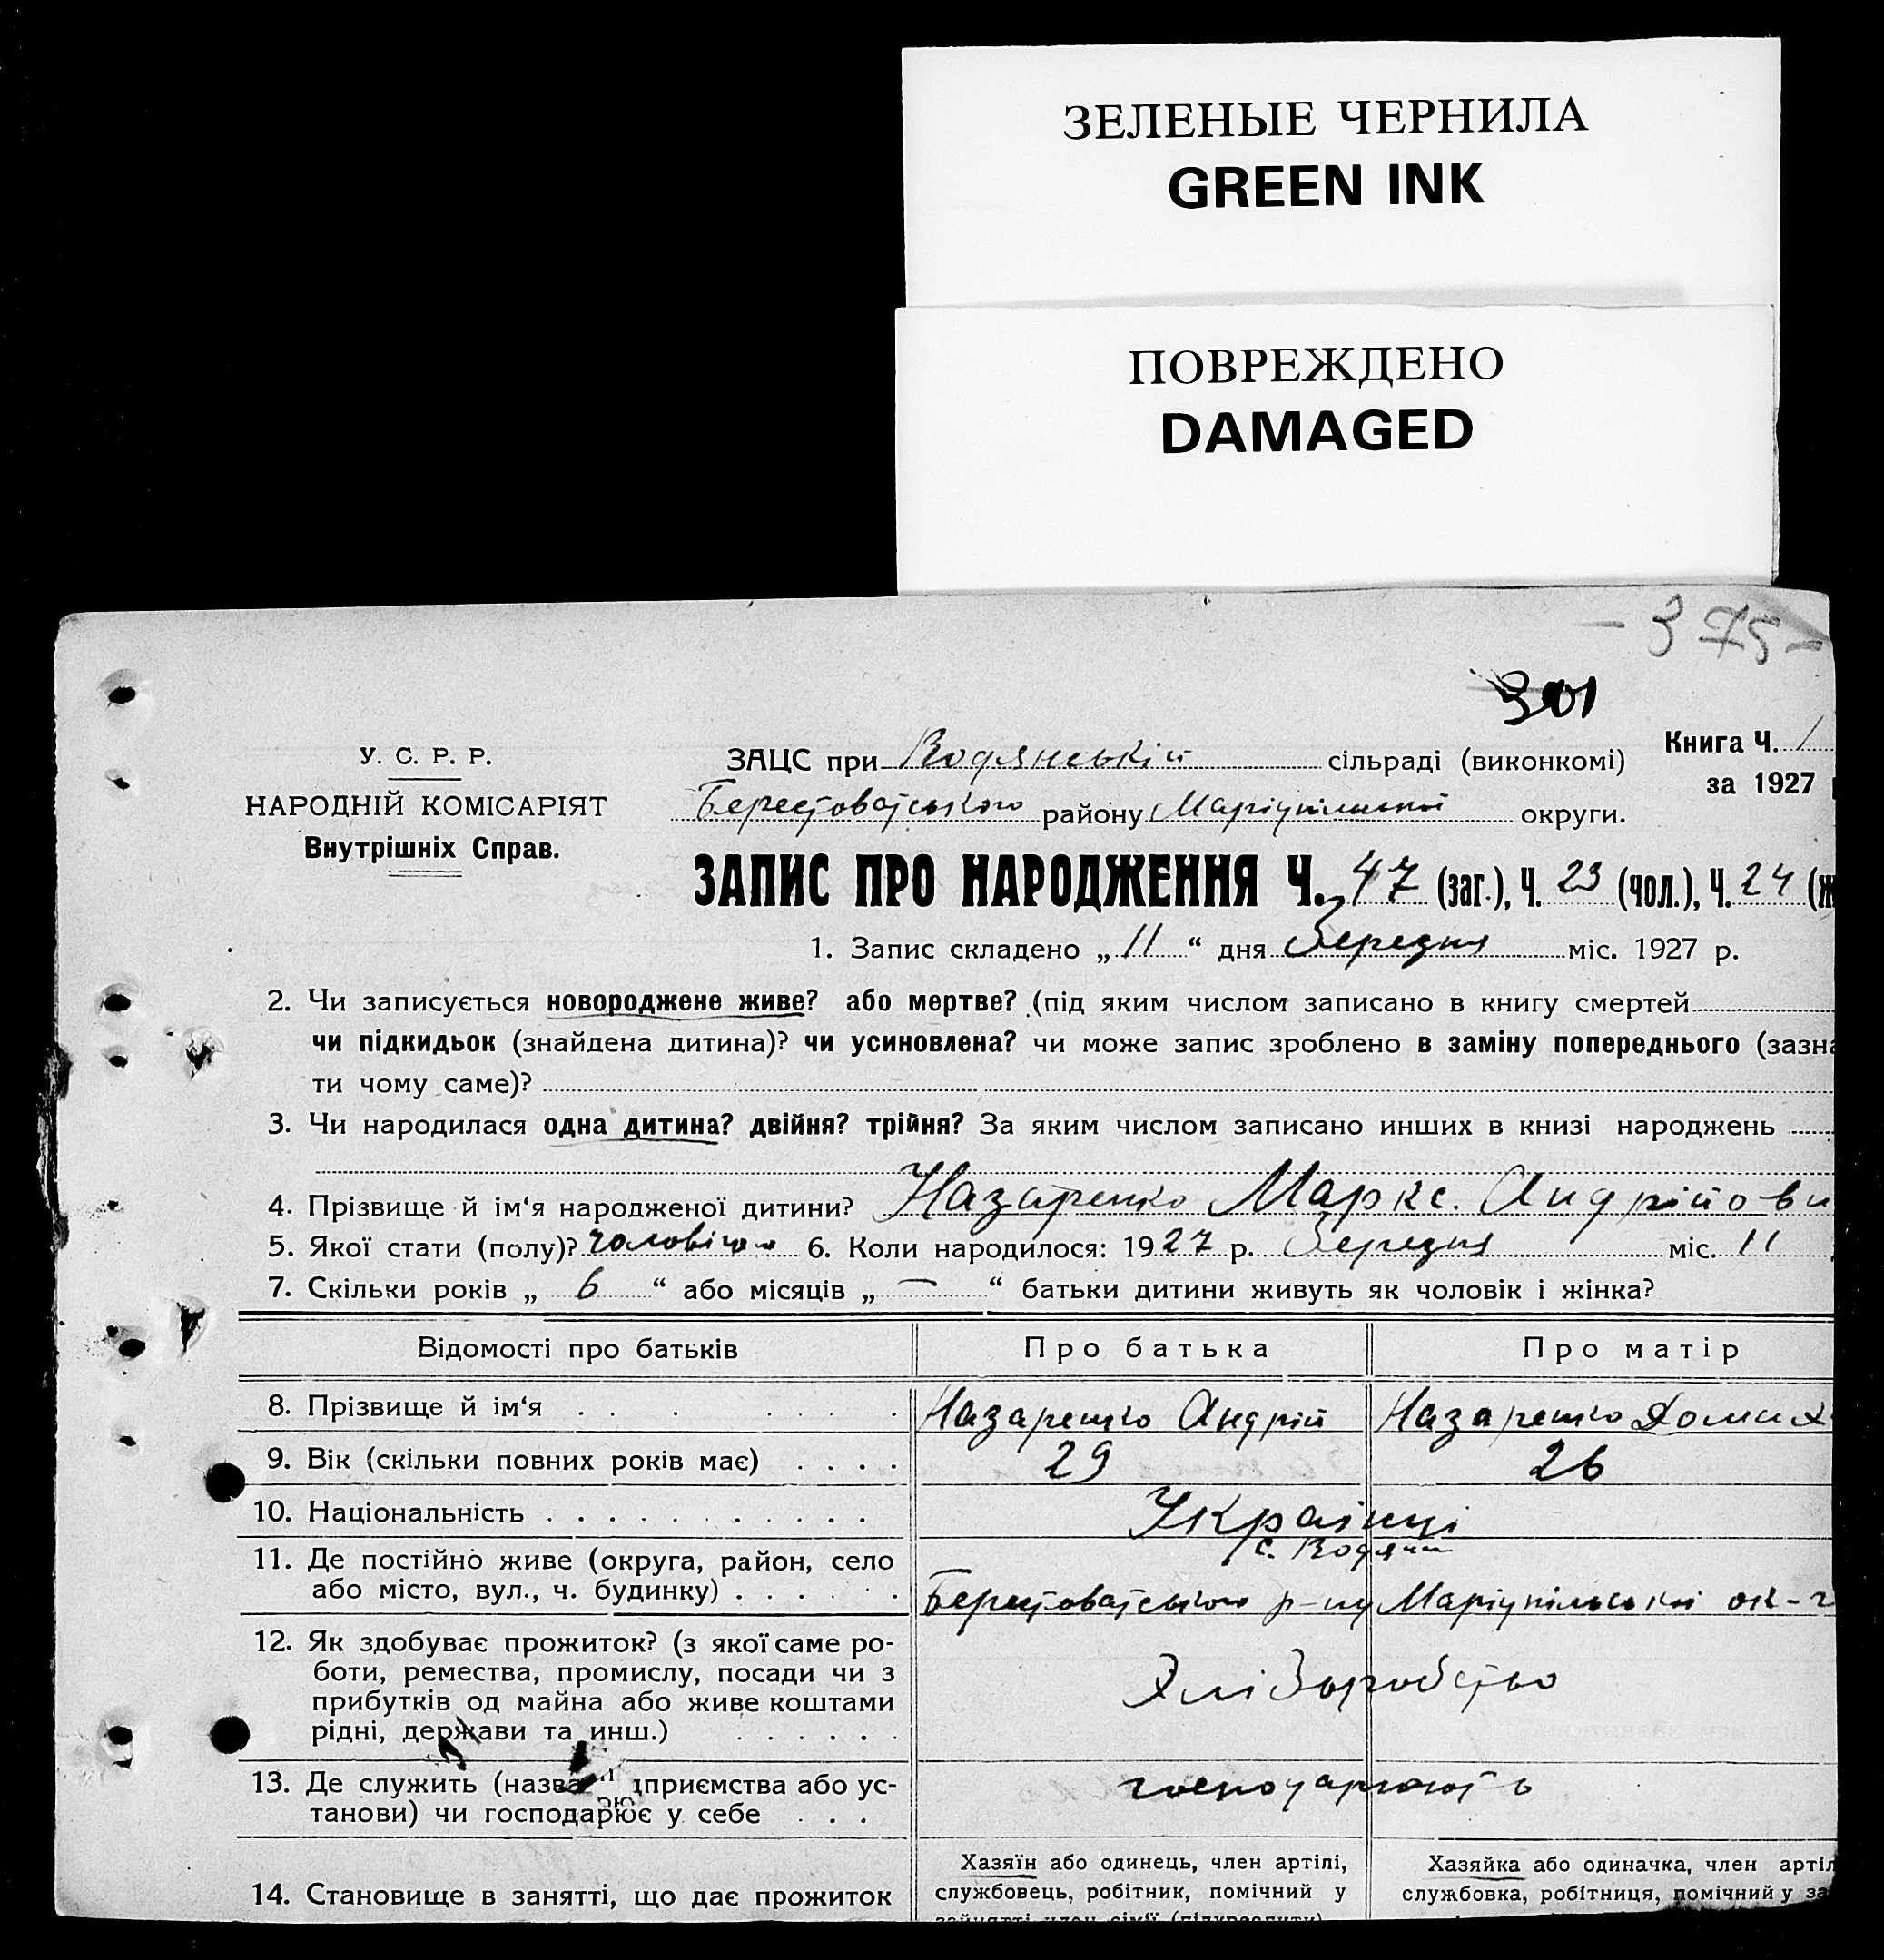 ЗЕЛЕНЫЕ ЧЕРНИЛА
GREEN INK
ПОВРЕЖДЕНО
DAMAGED
-375-
301
Книга Ч. 1
за 1927
У. С. Р. Р.
НАРОДНІЙ КОМІСАРІЯТ
Внутрішніх Справ.
ЗАЦС при Водянській сільраді (виконкомі)
Берестоватського району Маріупільської округи.
ЗАПИС ПРО НАРОДЖЕННЯ Ч. 47 (заг.), Ч. 23 (чол.), Ч. 24 (ж
1. Запис складено „ 11 “ дня Березня міс. 1927 р.
2. Чи записується новороджене живе? або мертве? (під яким числом записано в книгу смертей
чи підкидьок (знайдена дитина)? чи усиновлена? чи може запис зроблено в заміну попереднього (зазна
ти чому саме)?
3. Чи народилася одна дитина? двійня? трійня? За яким числом записано инших в книзі народжень
4. Прізвище й ім‘я народженої дитини? Назаренко Маркс. Андрійови
5. Якої стати (полу)? чоловічої 6. Коли народилося: 1927 р. Березня міс. 11
7. Скільки років „ 6 “ або місяців „ — “ батьки дитини живуть як чоловік і жінка?
Відомості про батьків Про батька Про матір
8. Прізвище й ім‘я Назаренко Андрій Назаренко
9. Вік (скільки повних років має) 29 26
10. Національність Українці
11. Де постійно живе (округа, район, село с. Водяни
або місто, вул., ч. будинку) Берестоватського р-ну Маріупільської ок-г
12. Як здобуває прожиток? (з якої саме ро-
боти, ремества, промислу, посади чи з Хліборобство
прибутків од майна або живе коштами
рідні, держави та инш.)
13. Де служить (назва дприємства або ус- господарюють
танови) чи господарює у себе
Хазяїн або одинець, член артілі, Хазяйка або одиначка, член артіл
14. Становище в занятті, що дає прожиток службовець, робітник, помічний у службовка, робітниця, помічний у за
занятті член сім‘ї (підкреслити)